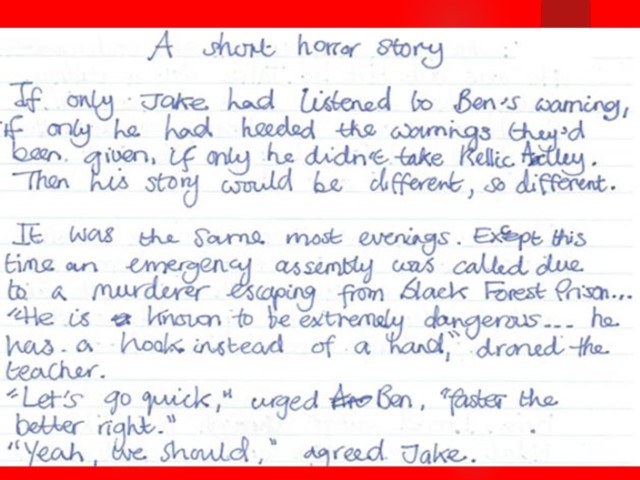 A short horror story
If only Jake had listened to Ben's warning,
if only he had heeded the warnings they'd
been given, if only he didn't take Rellic Alley.
Then his story would be different, so different.
It was the same most evenings. Except this
time an emergency assembly was called due
to a murderer escaping from Black Forest Prison...
"He is known to be extremely dangerous... he
has a hook instead of a hand," droned the
teacher.
"Let's go quick," urged Ben, "faster the
better right."
"Yeah, we should," agreed Jake.